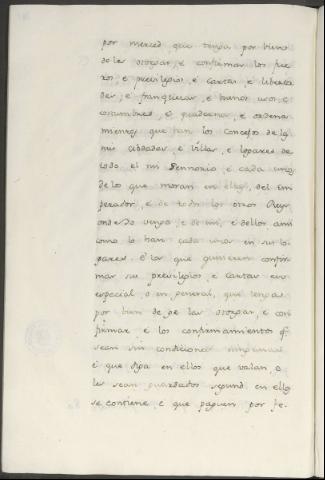 por merced, que tenga por bien
de les otorgar, e confirmar los fue
ros, e previlegios, e cartas, e liberta
des, e franquezas, e buenos usos, e
costumbres, e quadernos, e ordena
mientos que han los concejos de las
mis cibdades, e villas, e logares de
todo el mi Sennorio, e cada unos
de los que moran en ellos, del em
perador, e de todos los otros Reyes
onde Yo vengo, e de mi, e dellos asi
como lo han cada unos en sus lo
gares. E los que quisieren confir
mar sus previlegios, e cartas en
especial, o en general, que tenga
por bien de ge las otorgar, e con
firmar e los confirmamientos q.
sean sin condiciones ningunas
e que diga en ellos que valan, e
les sean guardados segund en ellos
se contiene, e que paguen por fe-